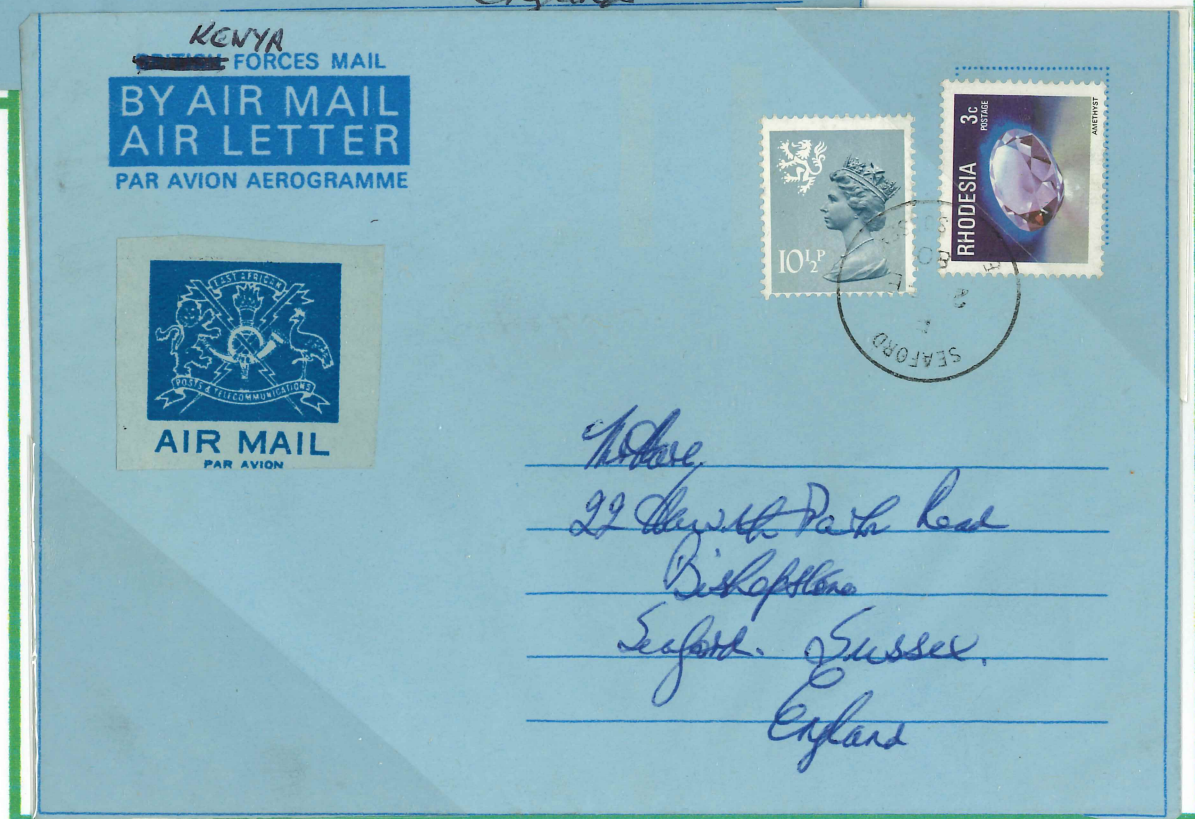 England
KENYA
FORCES MAIL
BY AIR MAIL
AIR LETTER
PAR AVION AEROGRAMME
EAST AFRICAN
POSTS & TELECOMMUNICATIONS
AIR MAIL
PAR AVION
10½P
RHODESIA
3c
POSTAGE
AMETHYST
SEAFORD
22 Park Road
Bishopstone
Seaford. Sussex.
England